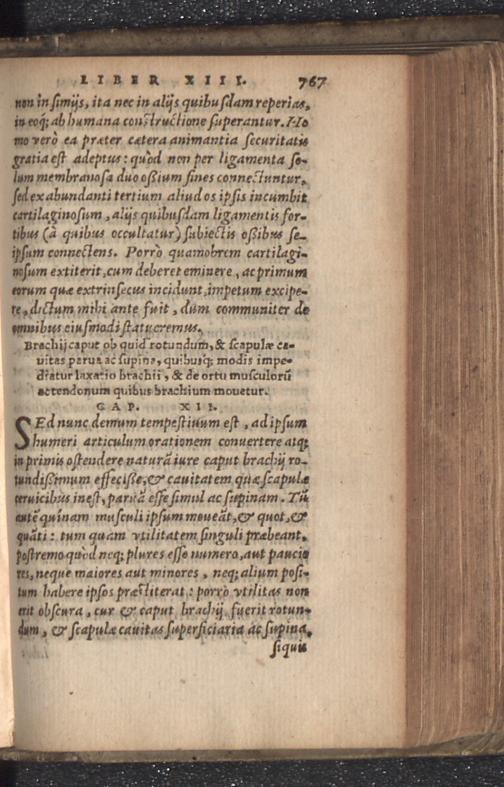 LIBER XIII. 767
non in simijs, ita nec in alijs quibusdam reperias,
in eoq; ab humana constructione superantur. Ho
mo verò ea præter cætera animantia securitatis
gratia est adeptus: quòd non per ligamenta so-
lum membranosa duo oßium fines connectuntur,
sed ex abundanti tertium aliud os ipsis incumbit
cartilaginosum, alijs quibusdam ligamentis for-
tibus (à quibus occultatur) subiectis oßibus se-
ipsum connectens. Porrò quamobrem cartilagi-
nosum extiterit, cum deberet eminere, ac primum
eorum quæ extrinsecus incidunt, impetum excipe-
re, dictum mihi ante fuit, dum communiter de
omnibus eiusmodi statueremus.
Brachij caput ob quid rotundum, & scapulæ ca-
uitas parua ac supina, quibusq; modis impe-
diatur luxatio brachii, & de ortu musculorū
ac tendonum quibus brachium mouetur.
CAP. XII.
SEd nunc demum tempestiuum est, ad ipsum
humeri articulum orationem conuertere atq;
in primis ostendere naturā iure caput brachij ro-
tundißimum effecisse, & cauitatem quæ scapulæ
ceruicibus inest, paruā esse simul ac supinam. Tū
autē quinam musculi ipsum moueāt, & quot, &
quāti: tum quam vtilitatem singuli præbeant.
postremo quod neq; plures esse numero, aut paucio
res, neque maiores aut minores, neq; alium posi-
tum habere ipsos præstiterat: porrò vtilitas non
erit obscura, cur & caput brachij fuerit rotun-
dum, & scapulæ cauitas superficiaria ac supina,
siquis